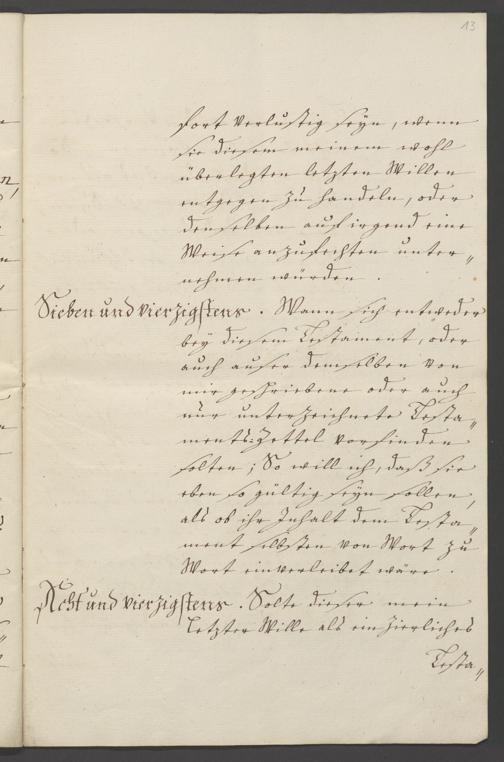 13
fort verlustig seÿn, wenn
sie diesem meinem wohl
überlegten letzten Willen
entgegen zu handeln, oder
denselben auf irgend eine
Weise anzufechten unter„
nehmen würden.
Sieben und vierzigstens. Wann sich entweder
beÿ diesem Testament, oder
auch auser demselben von
mir geschriebene oder auch
nur unterzeichnete Testa„
ments-Zettel vorfinden
solten; So will ich, daß sie
eben so gültig seÿn sollen,
als ob ihr Inhalt dem Testa„
ment selbsten von Wort zu
Wort einverleibet wäre.
Acht und vierzigstens. Solte dieser mein
letzter Wille als ein zierliches
Testa„